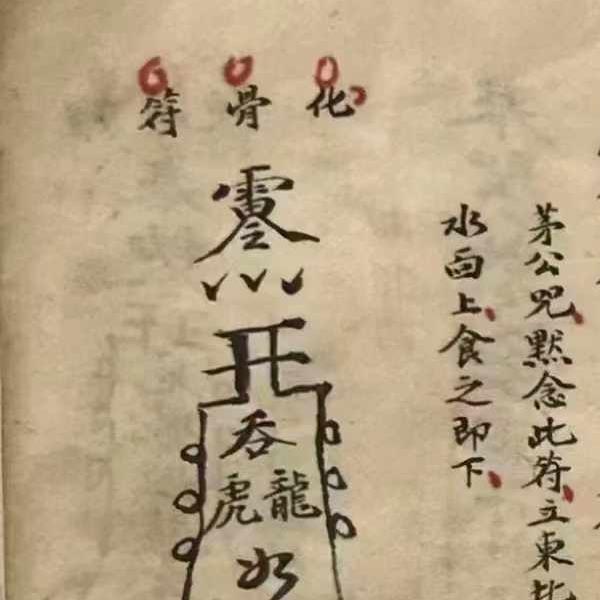 茅公咒默念此符立東
水面上食之即下
化骨符
吞
龍虎